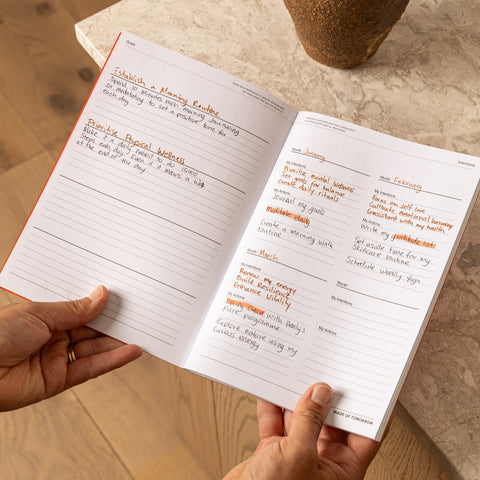 Goals
Establish a Morning Routine
Spend 10 minutes each morning journaling
or meditating to set a positive tone for
each day
Prioritise Physical Wellness
Make it a daily habit to do 10,000
steps each day. Even if it means a walk
at the end of the day
Intentions
Month January
My Intentions
Prioritise mental wellness
Set goals for balance
Create daily rituals
My Actions
Journal my goals
Meditate daily
Create a morning walk
routine
Month February
My Intentions
Focus on self love
Cultivate emotional harmony
Consistent with my health
My Actions
Write my gratitude list
Set aside time for my
Skincare routine
Schedule weekly Yoga
Month March
My Intentions
Renew my energy
Build Resilience
Enhance Vitality
My Actions
with
programme
Explore nature using my
energy
Month
My Intentions
My Actions
MADE OF TOMORROW